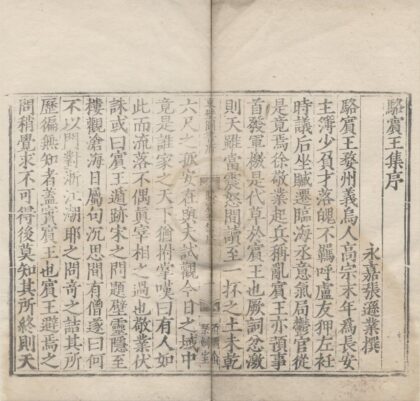 駱賓王集序
永嘉張遜業撰
駱賓王婺州義烏人高宗末年為長安
主簿少負才落魄不羈呼盧友狎左衽
時議后坐贓遷臨海丞意氣局鬱宦從
是竟焉徐敬業起兵稱亂賓王亦預事
首發軍檄是代草於賓王也厥詞忿激
則天雖當震怒間讀至一抔之土未乾
六尺之孤安在與夫試觀今日之域中
竟是誰家之天下猶拊掌嘆曰有人如
此而流落不偶眞宰相之過也敬業伏
誅或曰賓王遁跡宋之問題壁靈隱至
樓觀滄海日屬句沉思間有僧遂曰何
不以門對浙江潮耶之問奇之詰其所
歷徧無知者蓋賓王也賓王避焉之
問稍覺求不可得後莫知其所終則天